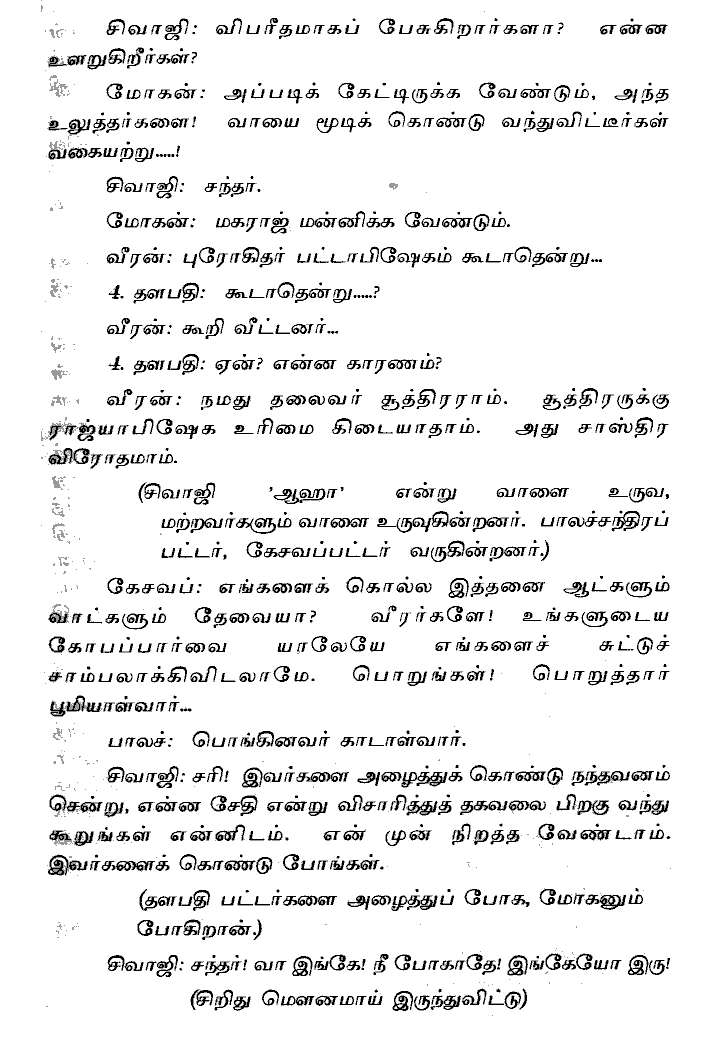 சிவாஜி: விபரீதமாகப் பேசுகிறார்களா? என்ன
உளறுகிறீர்கள்?
மோகன்: அப்படிக் கேட்டிருக்க வேண்டும், அந்த
உலுத்தர்களை! வாயை மூடிக் கொண்டு வந்துவிட்டீர்கள்
வகையற்று.....!
சிவாஜி: சந்தர்.
மோகன்: மகராஜ் மன்னிக்க வேண்டும்.
வீரன்: புரோகிதர் பட்டாபிஷேகம் கூடாதென்று...
4. தளபதி: கூடாதென்று.....?
வீரன்: கூறி வீட்டனர்...
4. தளபதி: ஏன்? என்ன காரணம்?
வீரன்: நமது தலைவர் சூத்திரராம். சூத்திரருக்கு
ராஜ்யாபிஷேக உரிமை கிடையாதாம். அது சாஸ்திர
விரோதமாம்.
(சிவாஜி 'ஆஹா' என்று வாளை உருவ,
மற்றவர்களும் வாளை உருவுகின்றனர். பாலச்சந்திரப்
பட்டர், கேசவப்பட்டர் வருகின்றனர்.)
கேசவப்: எங்களைக் கொல்ல இத்தனை ஆட்களும்
வாட்களும் தேவையா? வீரர்களே! உங்களுடைய
கோபப்பார்வை யாலேயே எங்களைச் சுட்டுச்
சாம்பலாக்கிவிடலாமே. பொறுங்கள்! பொறுத்தார்
பூமியாள்வார்...
பாலச்: பொங்கினவர் காடாள்வார்.
சிவாஜி: சரி! இவர்களை அழைத்துக் கொண்டு நந்தவனம்
சென்று, என்ன சேதி என்று விசாரித்துத் தகவலை பிறகு வந்து
கூறுங்கள் என்னிடம். என் முன் நிறத்த வேண்டாம்.
இவர்களைக் கொண்டு போங்கள்.
(தளபதி பட்டர்களை அழைத்துப் போக, மோகனும்
போகிறான்.)
சிவாஜி: சந்தர்! வா இங்கே! நீ போகாதே! இங்கேயோ இரு!
(சிறிது மௌனமாய் இருந்துவிட்டு)